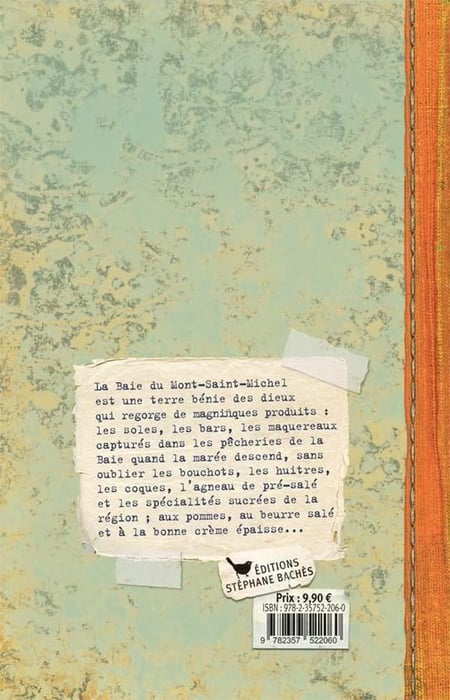 La Baie du Mont-Saint-Michel
est une terre bénie des dieux
qui regorge de magnifiques produits :
les soles, les bars, les maquereaux
capturés dans les pêcheries de la
Baie quand la marée descend, sans
oublier les bouchots, les huîtres,
les coques, l'agneau de pré-salé
et les spécialités sucrées de la
région ; aux pommes, au beurre salé
et à la bonne crème épaisse...
ÉDITIONS
STÉPHANE BACHÈS
Prix : 9,90 €
ISBN : 978-2-35752-206-0
9 782357 522060